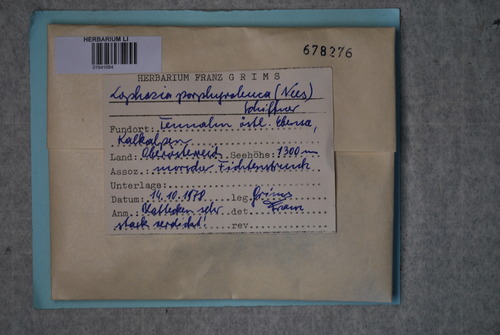 HERBARIUM LI
678276
HERBARIUM FRANZ GRIMS
Lophozia porphyroleuca (Nees)
Schiffner
Fundort: östl. Ebensee,
Kalkalpen
Land: Oberösterreich Seehöhe: 1300 m
Assoz. morscher Fichtenstrunk
Unterlage:
Datum: 14.10.1978 leg. Grims
Anm.: Blattecken sehr det. Franz
stark verdickt! rev.